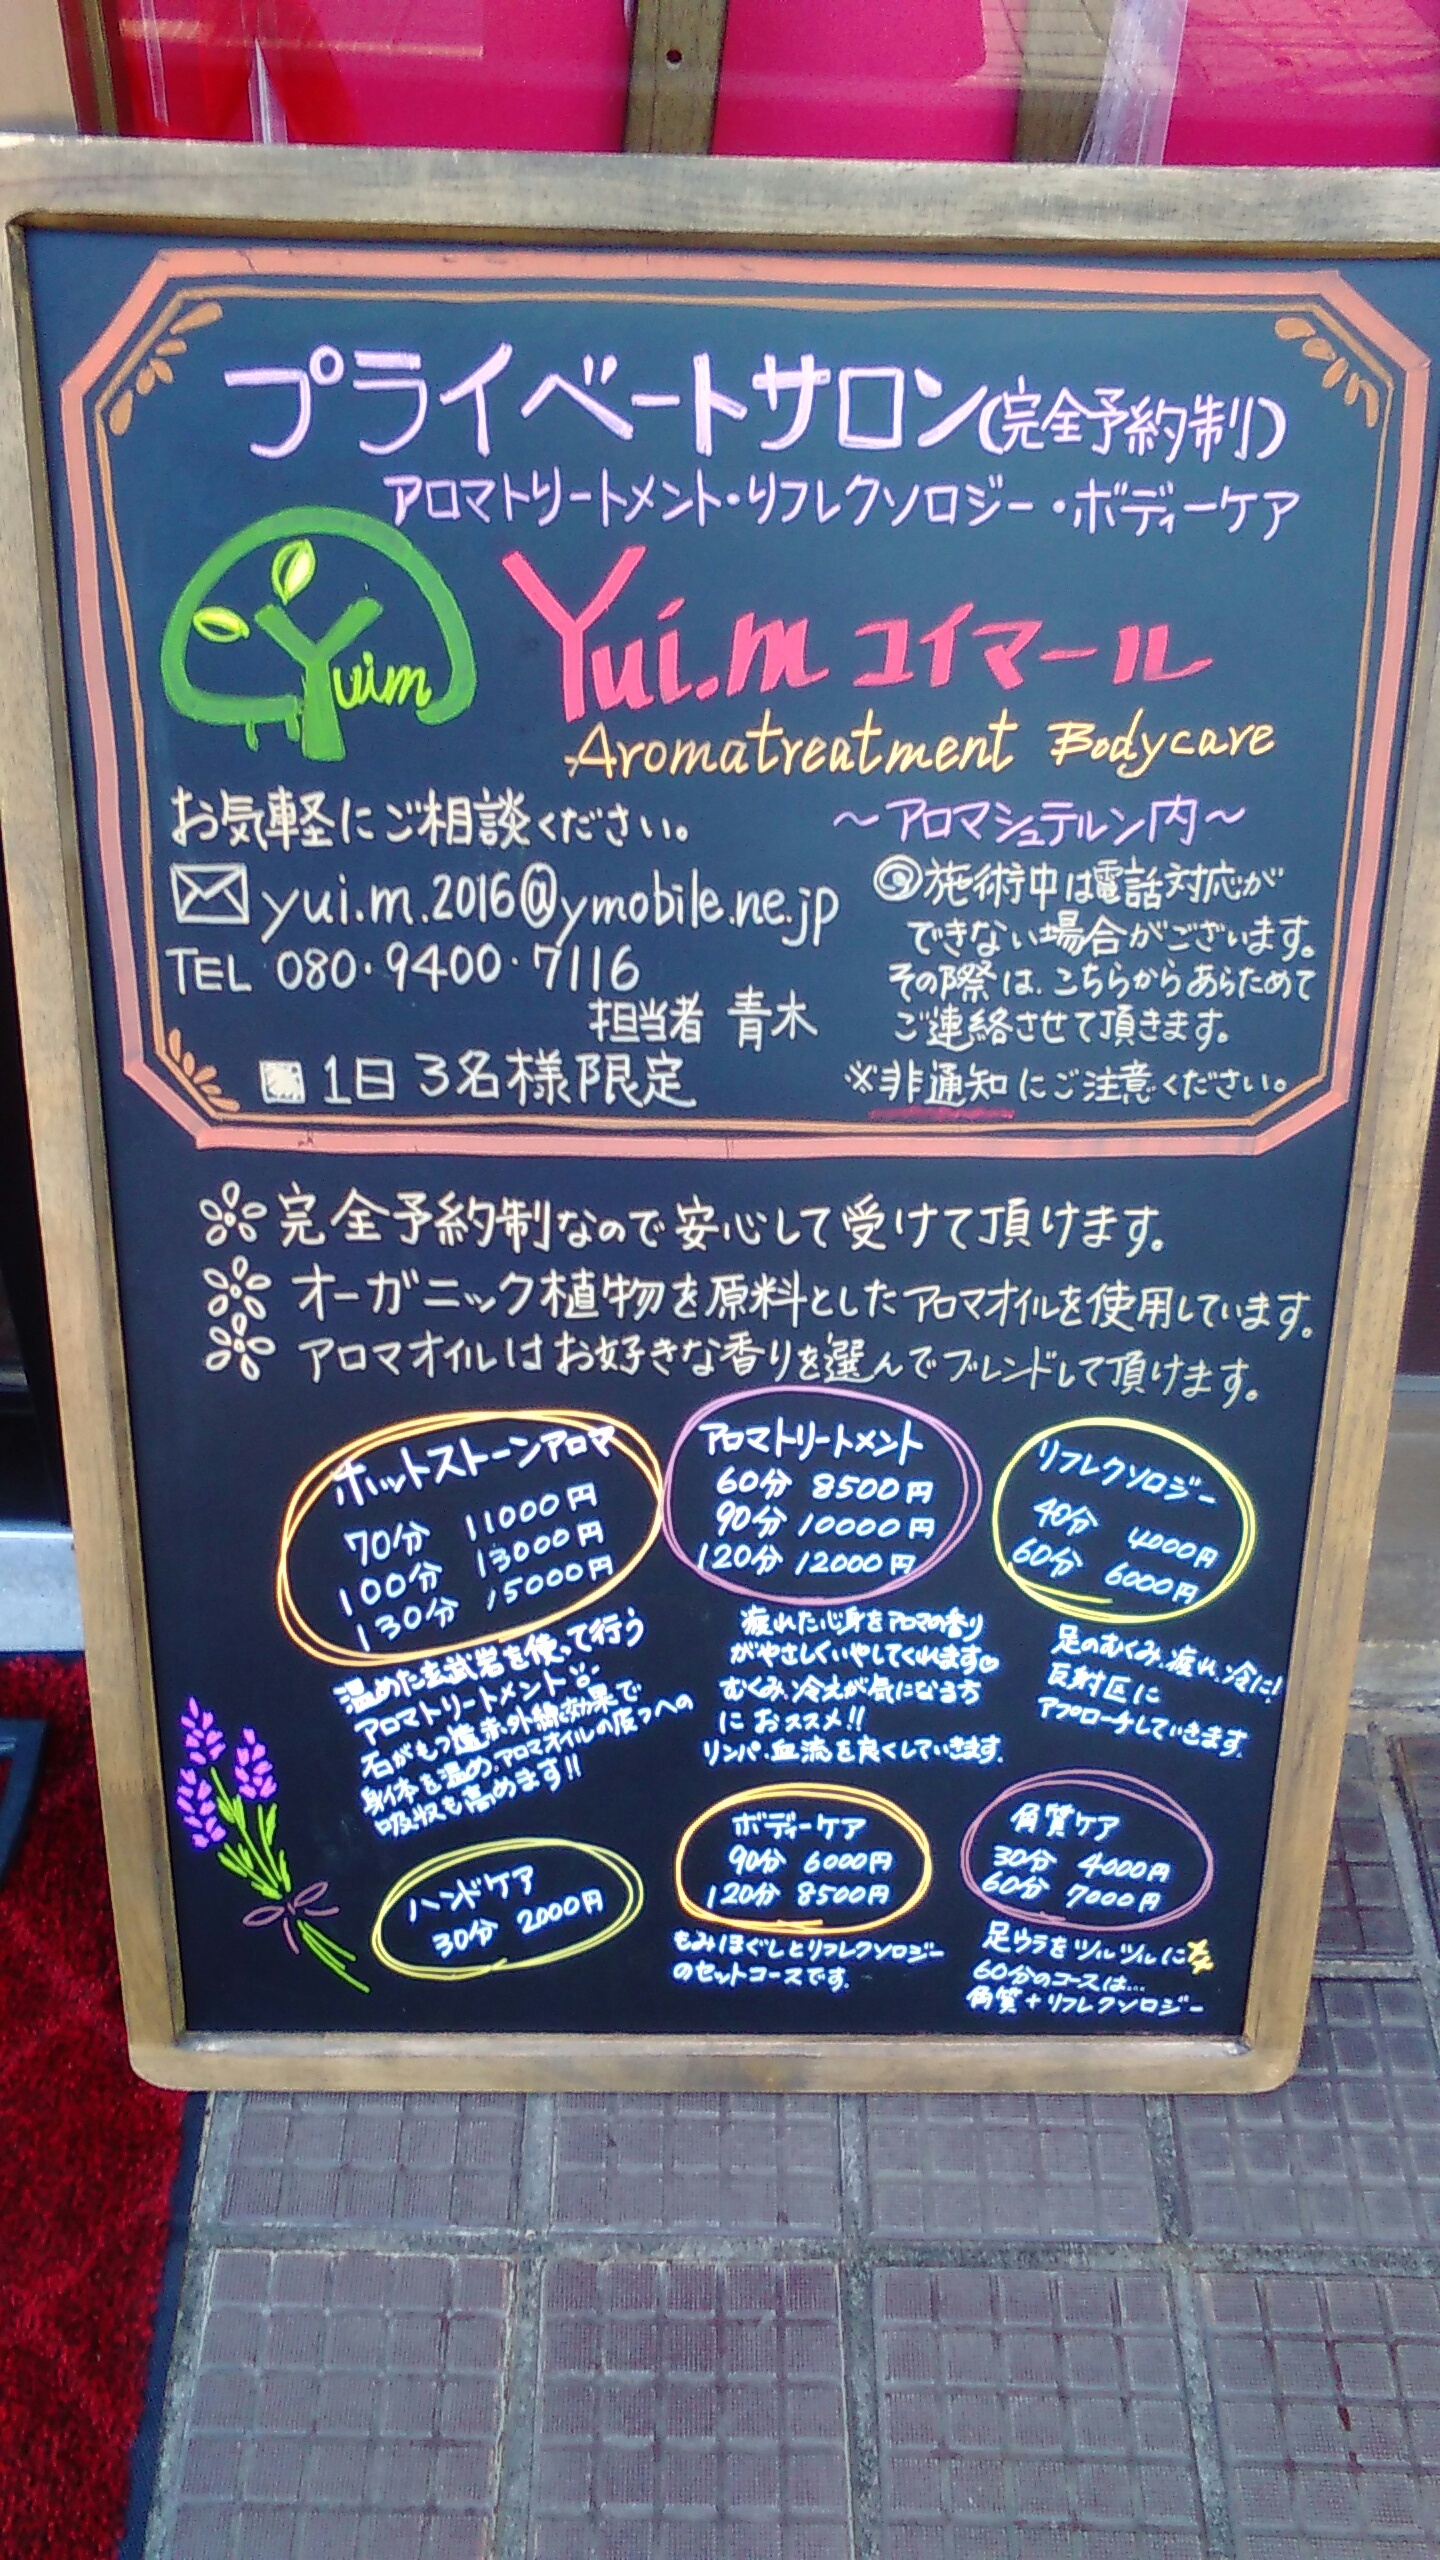 プライベートサロン(完全予約制)
アロマトリートメント・リフレクソロジー・ボディーケア
Yuim
Yui.m ユイマール
Aromatreatment Bodycare
お気軽にご相談ください。
～アロマシュテルン内～
yui.m.2016@ymobile.ne.jp
TEL 080・9400・7116
担当者 青木
1日 3名様限定
◎施術中は電話対応が
できない場合がございます。
その際は、こちらからあらためて
ご連絡させて頂きます。
※非通知にご注意ください。
完全予約制なので安心して受けて頂けます。
オーガニック植物を原料としたアロマオイルを使用しています。
アロマオイルはお好きな香りを選んでブレンドして頂けます。
ホットストーンアロマ
70分 11000円
100分 13000円
130分 15000円
温めた玄武岩を使って行う
アロマトリートメント
石がもつ遠赤外線効果で
身体を温め、アロマオイルの皮フへの
吸収も高めます!!
アロマトリートメント
60分 8500円
90分 10000円
120分 12000円
疲れた心身をアロマの香り
がやさしくいやしてくれます♡
むくみ、冷えが気になる方
におススメ!!
リンパ、血流を良くしていきます。
リフレクソロジー
40分 4000円
60分 6000円
足のむくみ、疲れ、冷に!
反射区に
アプローチしていきます。
ハンドケア
30分 2000円
ボディーケア
90分 6000円
120分 8500円
もみほぐしとリフレクソロジー
のセットコースです。
角質ケア
30分 4000円
60分 7000円
足ウラをツルツルに
60分のコースは…
角質+リフレクソロジー